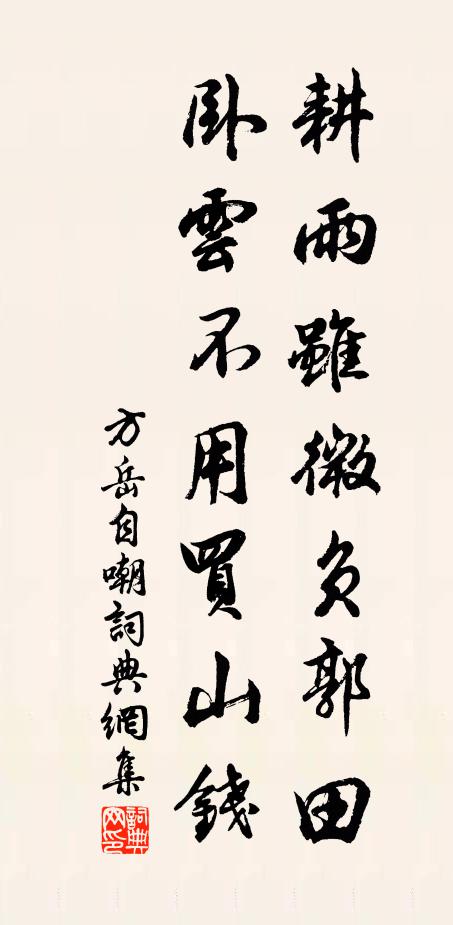 耕雨雖微負郭田
臥雲不用買山錢
方岳自嘲詞典網集
詞典網印